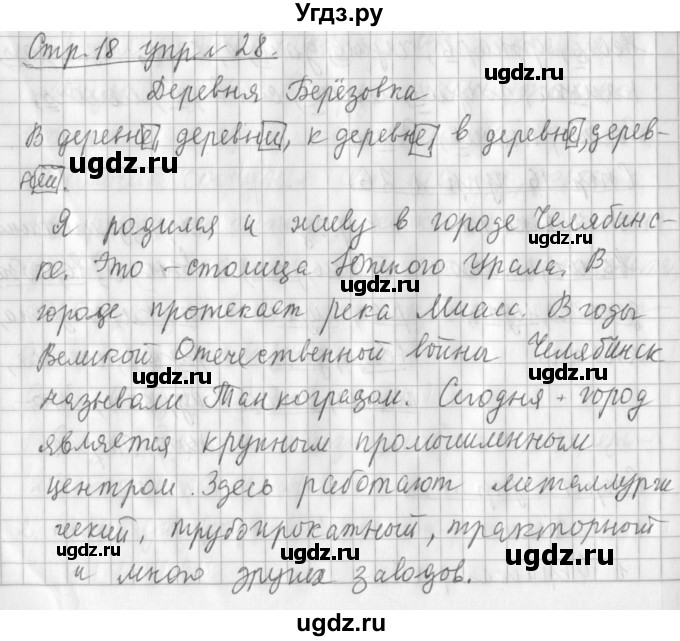 Угдз.ру
Стр. 18 упр № 28.
Деревня Берёзовка
В деревне, деревни, к деревне, в деревне, дерев-
ugdz.ru ugdz.ru
ней.
Я родился и живу в городе Челябинс-
ugdz.ru
ке. Это – столица Южного Урала. В
ugdz.ru
городе протекает река Миасс. В годы
ugdz.ru
Великой Отечественной войны Челябинск
ugdz.ru
называли Танкоградом. Сегодня – город
ugdz.ru
является крупным промышленным
ugdz.ru
центром. Здесь работают металлурги
ческий, трубопрокатный, тракторный
ugdz.ru ugdz.ru
и много других заводов.
ugdz.ru